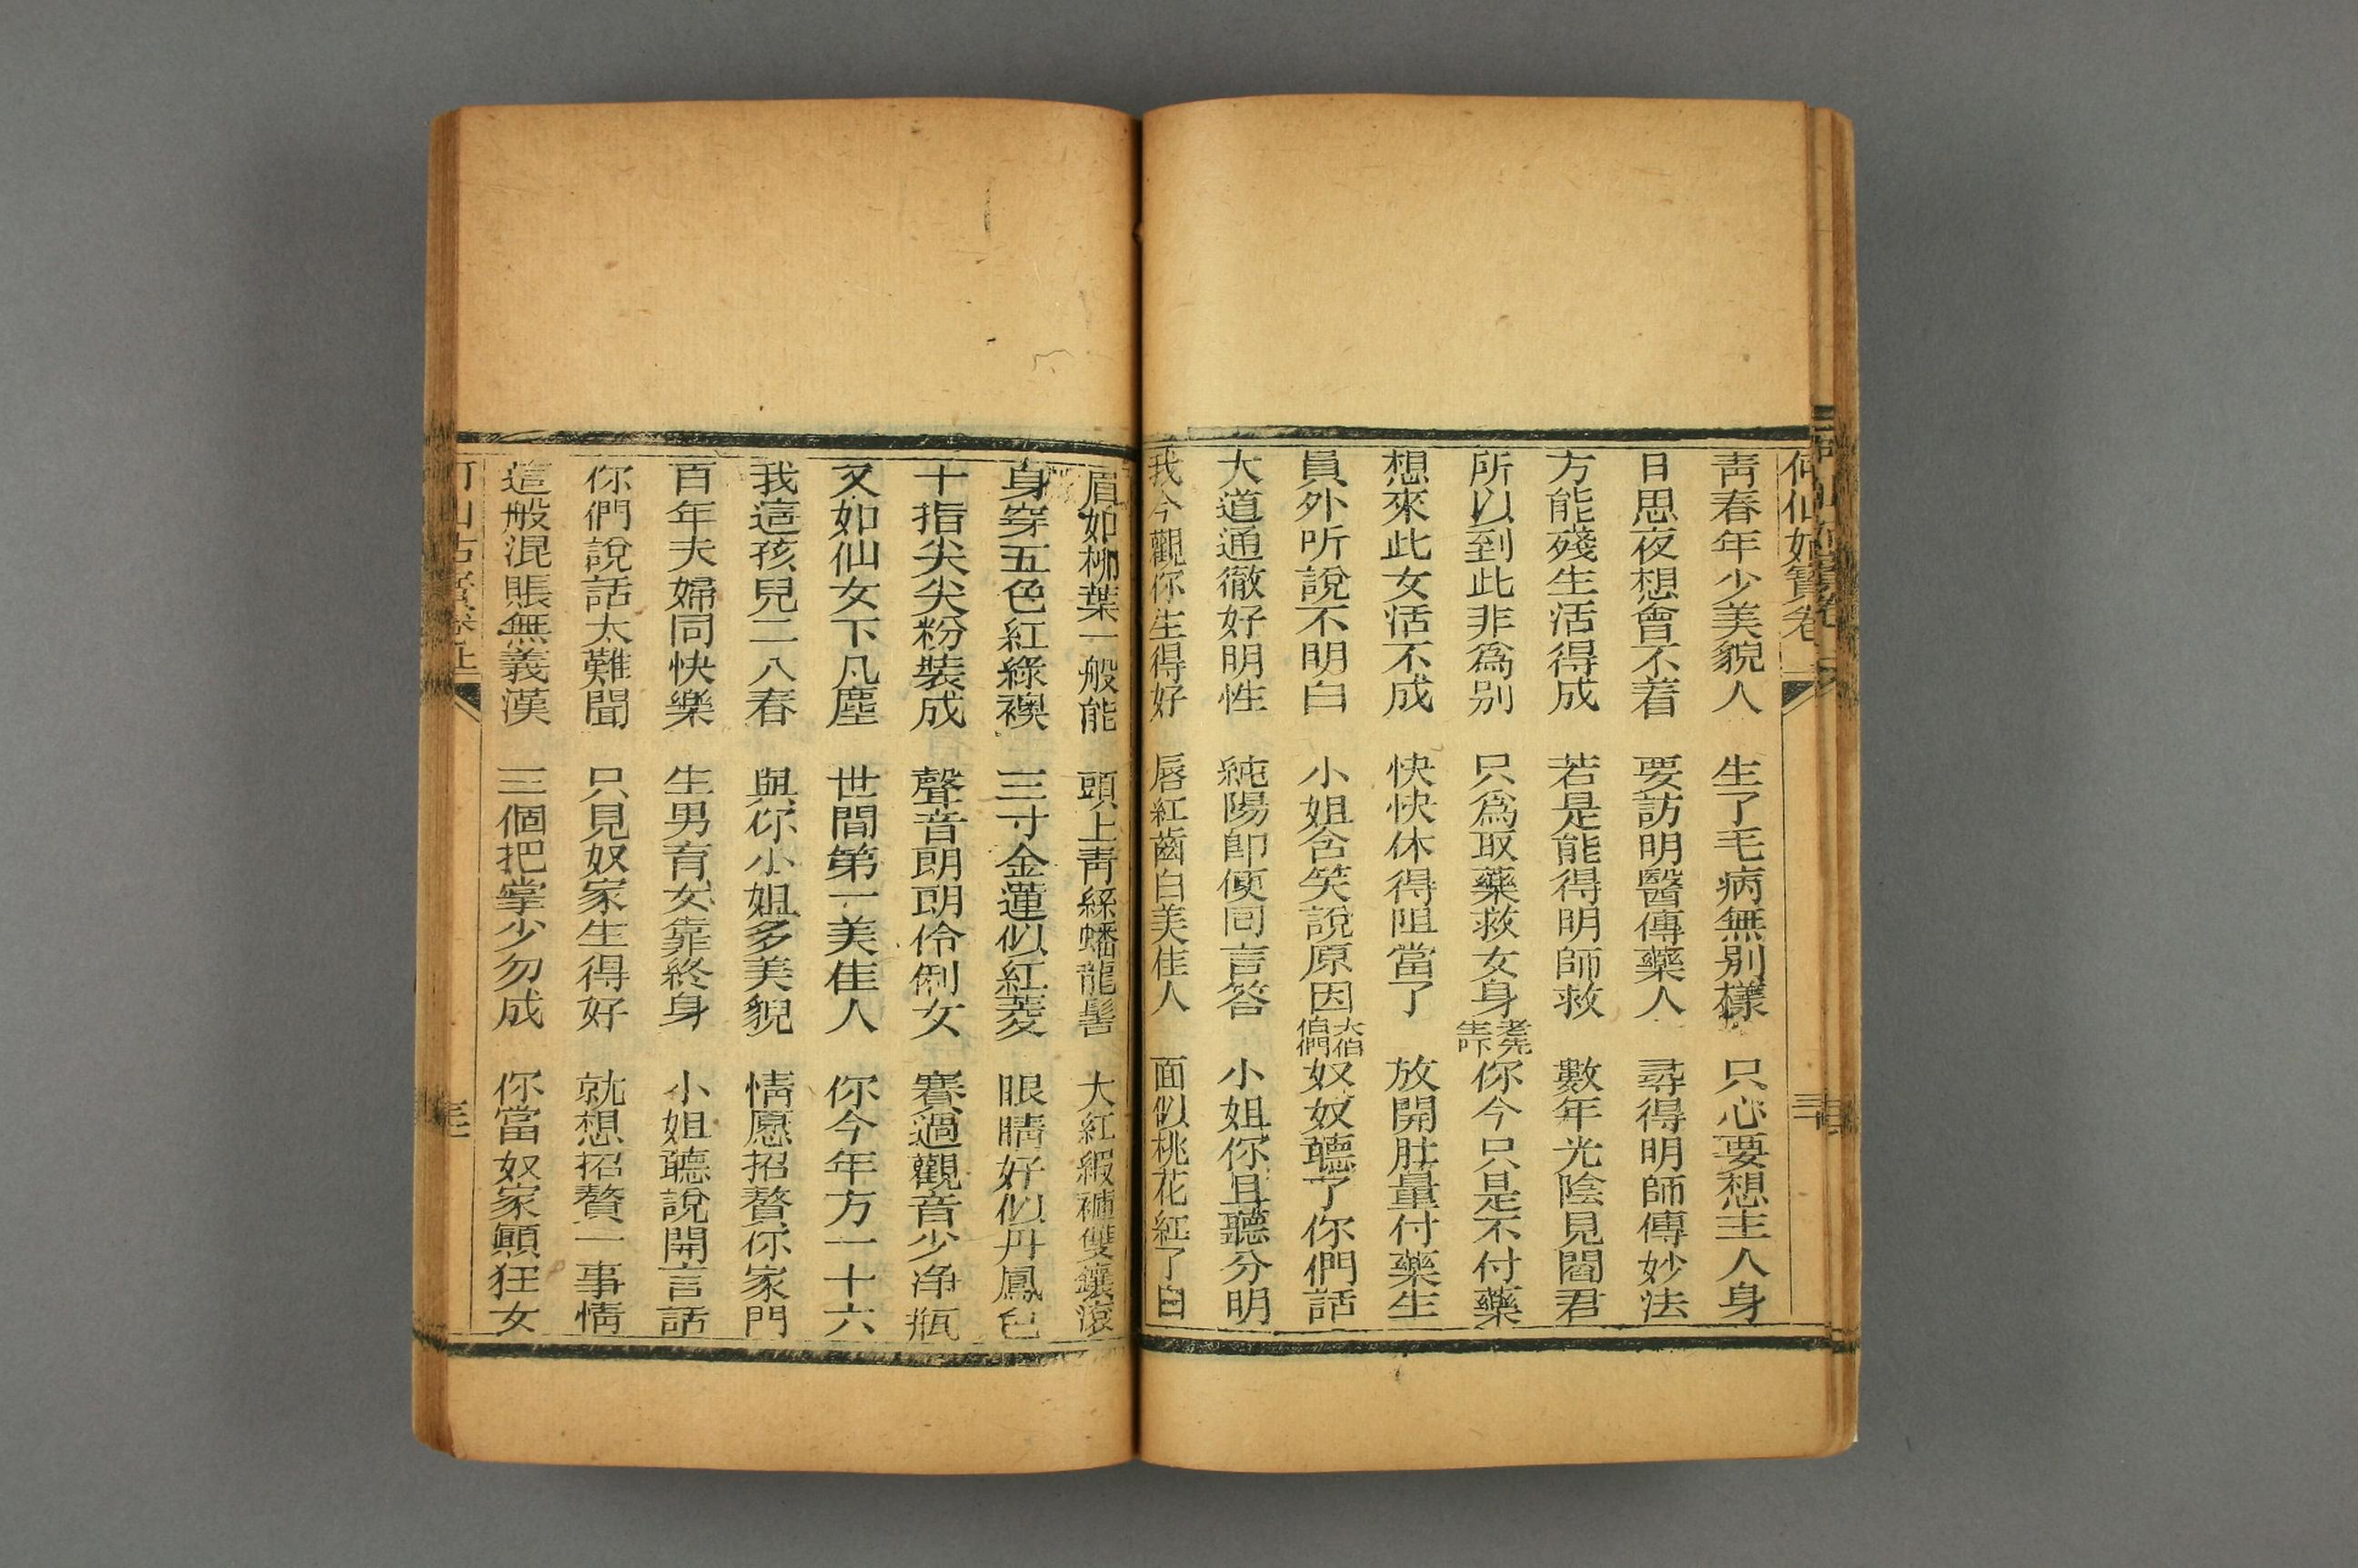 何仙姑寶卷 三十
青春年少美貌人 生了毛病無別樣 只心要想主人身
日思夜想會不着 要訪明醫傳藥人 尋得明師傳妙法
方能殘生活得成 若是能得明師救 數年光陰見閻君
所以到此非爲别 只爲取藥救女身 老先生吓 你今只是不付藥
想來此女活不成 快快休得阻當了 放開肚量付藥生
員外听說不明白 小姐含笑說原因 大伯伯們 奴奴聽了你們話
大道通徹好明性 純陽卽便囘言答 小姐你且聽分明
我今觀你生得好 唇紅齒白美佳人 面似桃花紅了白
眉如柳葉一般能 頭上青絲蟠龍髻 大紅緞褲雙鑲滾
身穿五色紅綠襖 三寸金蓮似紅菱 眼睛好似丹鳳色
十指尖尖粉裝成 聲音朗朗伶俐女 賽過觀音少净瓶
又如仙女下凡塵 世間第一美佳人 你今年方一十六
我這孩兒二八春 與你小姐多美貌 情愿招贅你家門
百年夫婦同快樂 生男育女靠終身 小姐聽說開言話
你們說話太難聞 只見奴家生得好 就想招贅一事情
這般混賬無義漢 三個把掌少勿成 你當奴家顚狂女